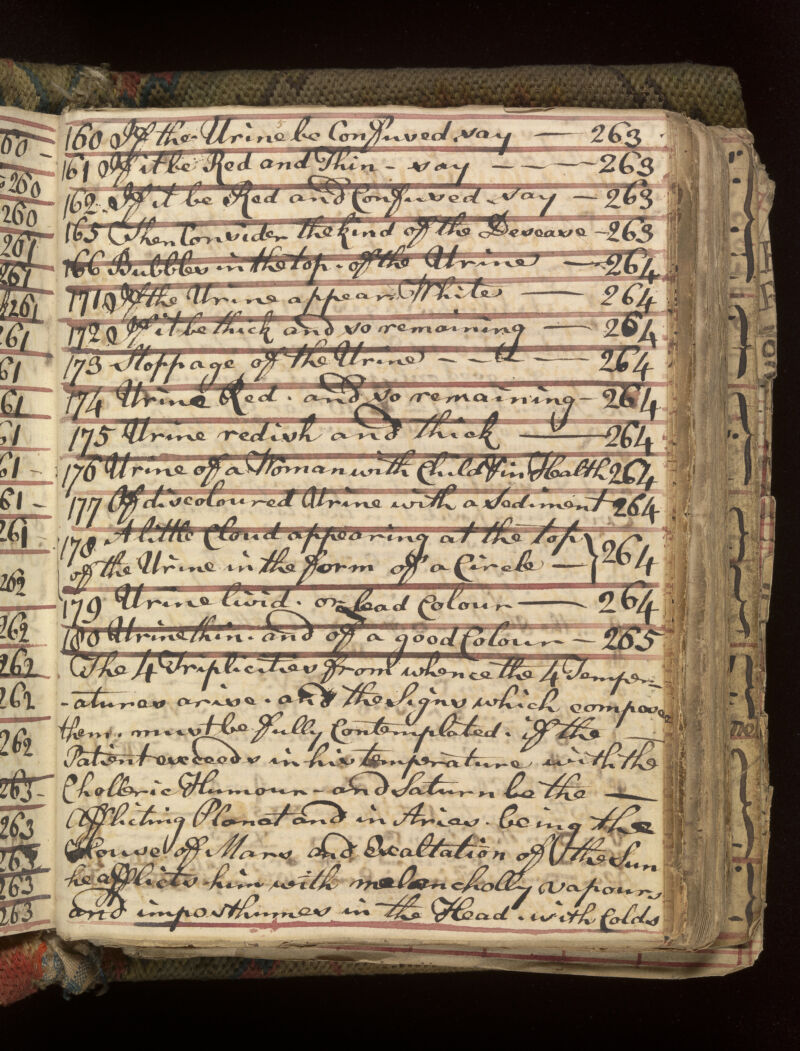 60 -
260
260
261
261
261
261
61
61
61
61 -
61 -
261
262
262
262
262
262
263 -
263
263
263
263
160 If the Urine be Confused say — 263
161 If it be Red and Thin - say — — — 263
162 If it be Red and Confused say — 263
165 Then Consider the kind of the Desease - 263
166 Bubbles in the top of the Urine — 264
171 If the Urine appear White — 264
172 If it be thick and so remaining — 264
173 Stoppage of the Urine — — — — 264
174 Urine Red . and so remaining - 264
175 Urine redish and thick — 264
176 Urine of a Woman with Child & in Health 264
177 Of discoloured Urine with a Sediment 264
178 A little Cloud appearing at the top
of the Urine in the form of a Circle — } 264
179 Urine livid . or lead Colour — 264
180 Urine thin . and of a good Colour — 265
The 4 Triplicities from whence the 4 Temper=
-atures arise . and the Signs which compose
them . must be fully Contemplated . if the
Patient exceeds in his temperature with the
Cholleric Humour - and Saturn be the —
Afflicting Planet and in Aries . being the
House of Mars and Exaltation of the Sun
he afflicts him with melancholly vapours
and imposthumes in the Head . with Colds